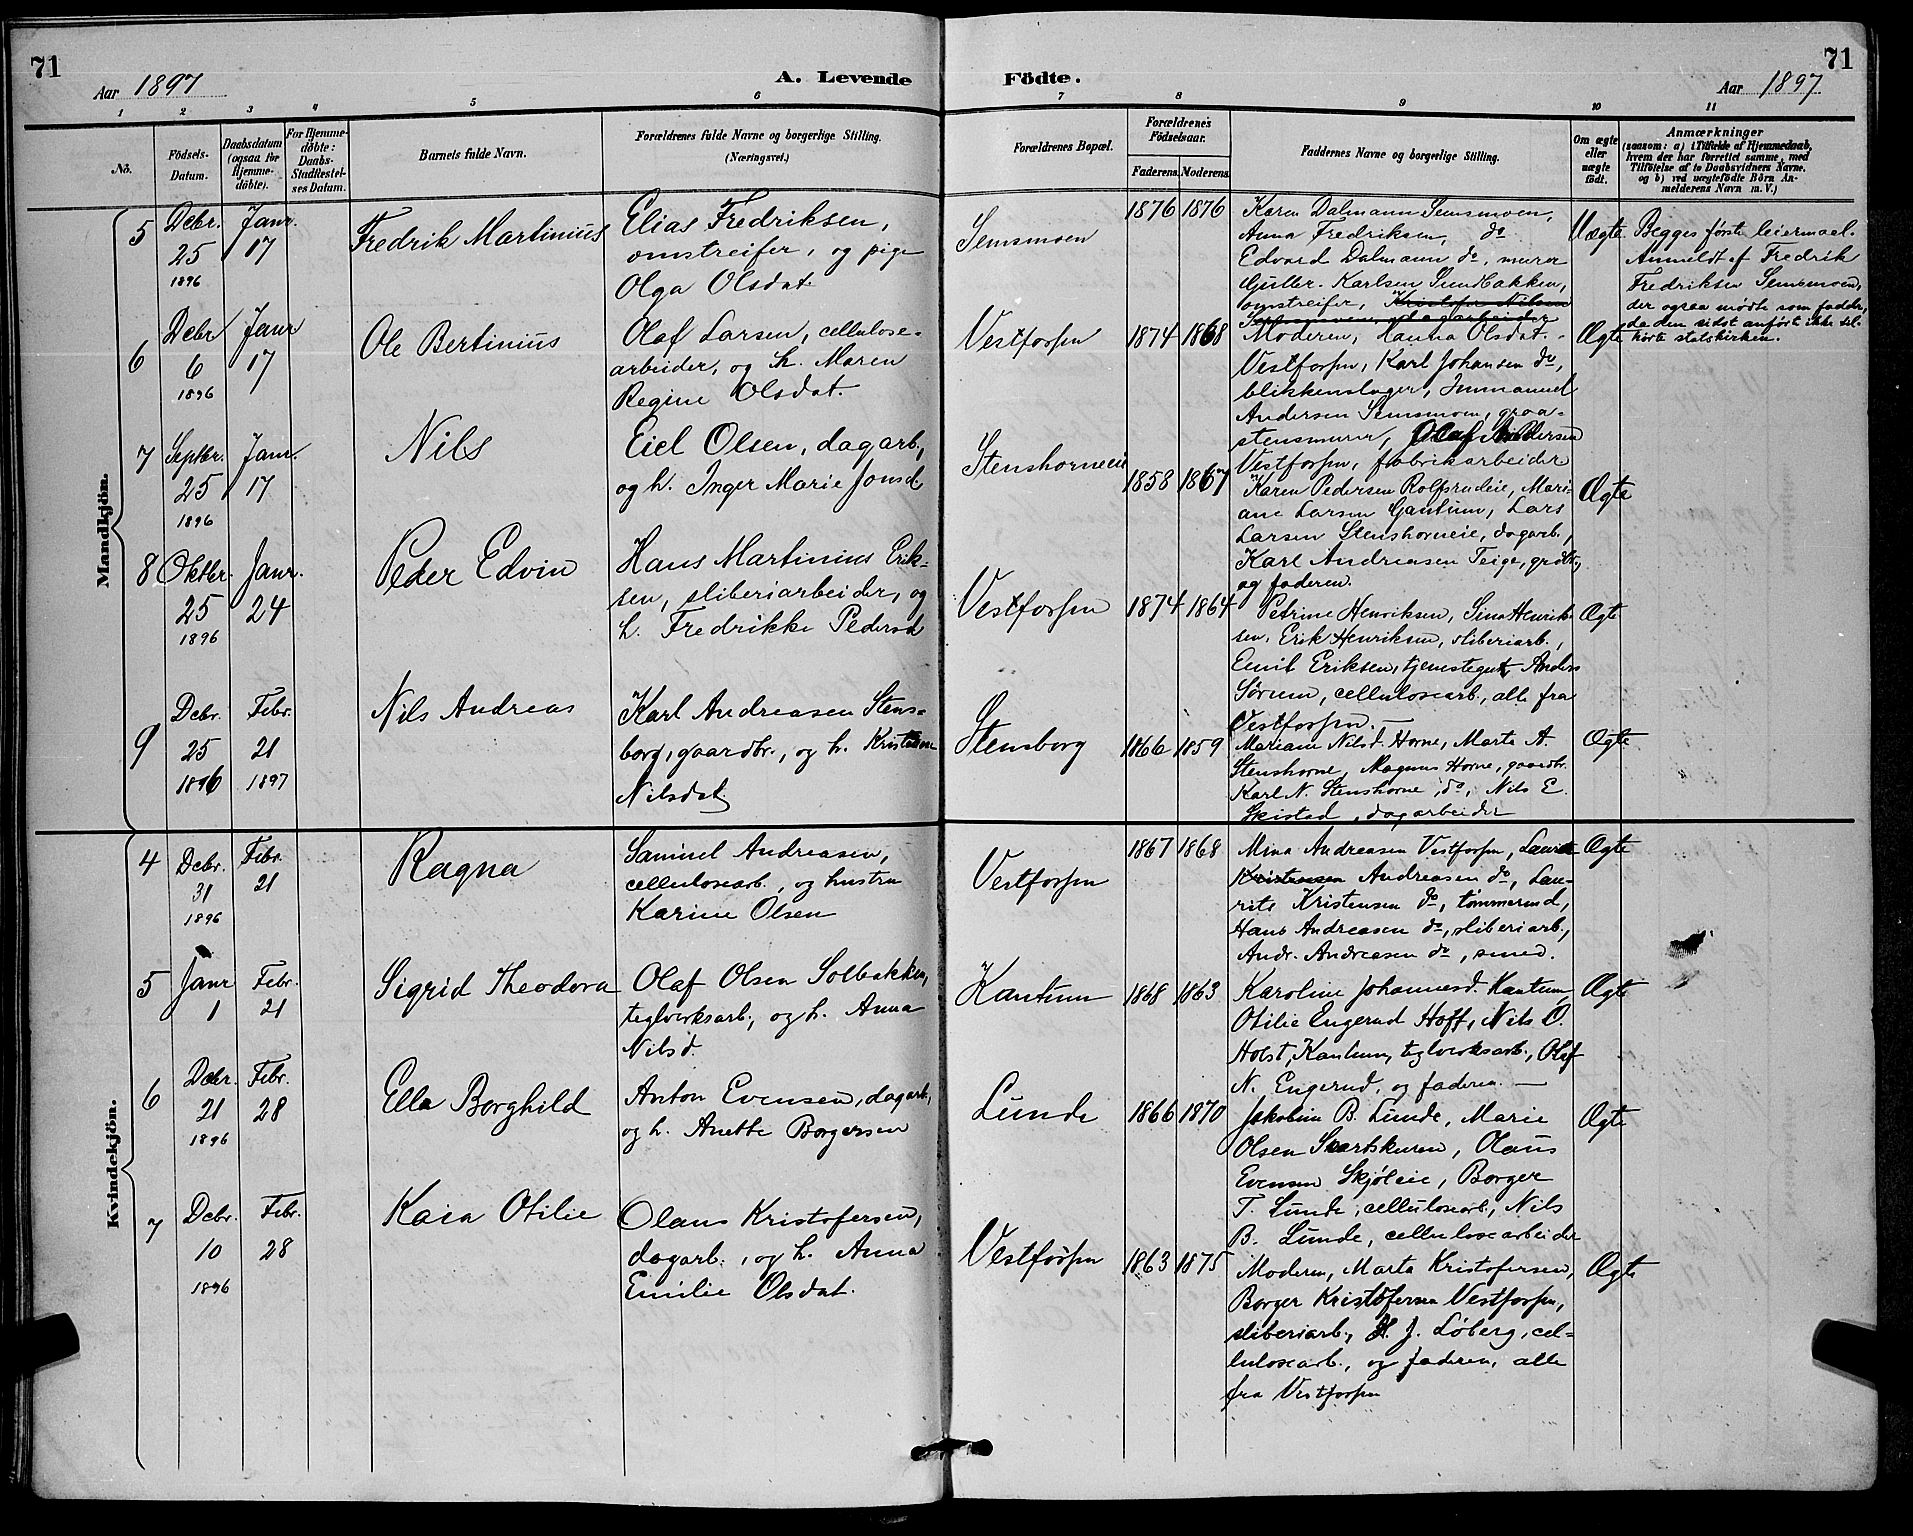 71
71
Aar 1897
A. Levende
Födte.
Aar 1897
1 2 3 4 5 6 7 8 9 10 11
No.
Födsels-
Datum.
Daabsdatum
(ogsaa for
Hjemme-
döbte).
For Hjemme-
döbte:
Daabs-
Stadfæstel-
ses Datum.
Barnets fulde Navn.
Forældrenes fulde Navne og borgerlige Stilling.
(Næringsvei.)
Forældrenes Bopæl.
Forældrenes
Födselsaar.
Faderens. Moderens.
Faddernes Navne og borgerlige Stilling.
Om ægte
eller
uægte
födt.
Anmærkninger
(saasom: a) i Tilfælde af Hjemmedaab,
hvem der har forrettet samme, med
Tilföielse af to Daabsvidners Navne,
og b) ved uægtefödte Börn An-
melderens Navn m. V.)
Mandkjön.
5
Debr.
25
1896
Janr.
17
Fredrik Martinius
Elias Fredriksen,
omstreifer, og pige
Olga Olsdat.
Semsmoen
1876 1876
Karen Dalmann Semsmoen,
Anna Fredriksen, do
Edvard Dalmann do, murer
Guller. Karlsen Sundbakken,
omstreifer, Kristofer Nilsen
Semsmoen, dagarbeider
Uægte
Begges første leiermaal.
Anmeldt af Fredrik
Fredriksen Semsmoen,
der ogsaa mødte som fadder,
da den sidst anførte ikke til-
hørte statskirken.
6
Debr
6
1896
Janr
17
Ole Bertinius
Olaf Larsen, cellulose-
arbeider, og h. Maren
Regine Olsdat.
Vestfossen
1874 1868
Moderen, Hanna Olsdat.
Vestfossen, Karl Johansen do,
blikkenslager, Immanuel
Andersen Semsmoen, graa-
stensmurer, Olaf Andersen
Vestfossen, fabrikarbeider
Ægte
7
Septbr.
25
1896
Janr.
17
Nils
Eiel Olsen, dagarb.,
og h. Inger Marie Jonsd.
Stenshorneie
1858 1867
Karen Pedersen Rolfsrudeie, Mari-
ane Larsen Gantum, Lars
Larsen Stenshorneie, dagarb.,
Karl Andreasen Teige, grdbr.,
og faderen.
Ægte
8
Oktbr.
25
1896
Janr.
24
Peder Edvin
Hans Martinius Erik-
sen, sliberiarbeider, og
h. Fredrikke Pedersd
Vestfossen
1874 1864
Petrine Henriksen, Sina Henrik-
sen, Erik Henriksen, sliberiarb.,
Emil Eriksen, tjenestegut, Anders
Sørum, cellulosearb., alle fra
Vestfossen. —
Ægte
9
Debr.
25
1896
Febr.
21
1897
Nils Andreas
Karl Andreasen Stens-
borg, gaardbr., og h. Kristiane
Nilsdat.
Stensborg
1866 1859
Mariane Nilsd. Horne, Marte A.
Stenshorne, Magnus Horne, gaardbr.
Karl N. Stenshorne, do, Nils E.
Skistad, dagarbeider
Ægte
Kvindekjön.
4
Debr.
31
1896
Febr.
21
Ragna
Samuel Andreasen,
cellulosearb., og hustru
Karine Olsen
Vestfossen
1867 1868
Mina Andreasen Vestfossen, Laura
Kristensen Andreasen do, Lau-
rits Kristensen do, tømmermd,
Hans Andreasen do, sliberiarb.,
Andr. Andreasen do, smed.
Ægte
5
Janr
1
Febr.
21
Sigrid Theodora
Olaf Olsen Solbakken,
teglverksarb., og h. Anna
Nilsd.
Kantum
1868 1863
Karoline Johannesd. Kantum,
Otilie Engerud Hoff, Nils O.
Holst, Kantum, teglverksarb., Olaf
N. Engerud, og faderen. —
Ægte
6
Debr.
21
1896
Febr.
28
Ella Borghild
Anton Evensen, dagarb.,
og h. Anette Borgersen
Lunde
1866 1870
Jakobine B. Lunde, Marie
Olsen Svartskuren, Olaus
Evensen Skjøleie, Borger
T. Lunde, cellulosearb., Nils
B. Lunde, cellulosearbeider
Ægte
7
Debr.
10
1896
Febr.
28
Kaia Otilie
Olaus Kristofersen,
dagarb., og h. Anna
Emilie Olsdat.
Vestfossen
1863 1875
Moderen, Marta Kristofersen,
Borger Kristofersen Vestfossen,
sliberiarb., H. J. Løberg, cel-
lulosearb., og faderen, alle
fra Vestfossen
Ægte